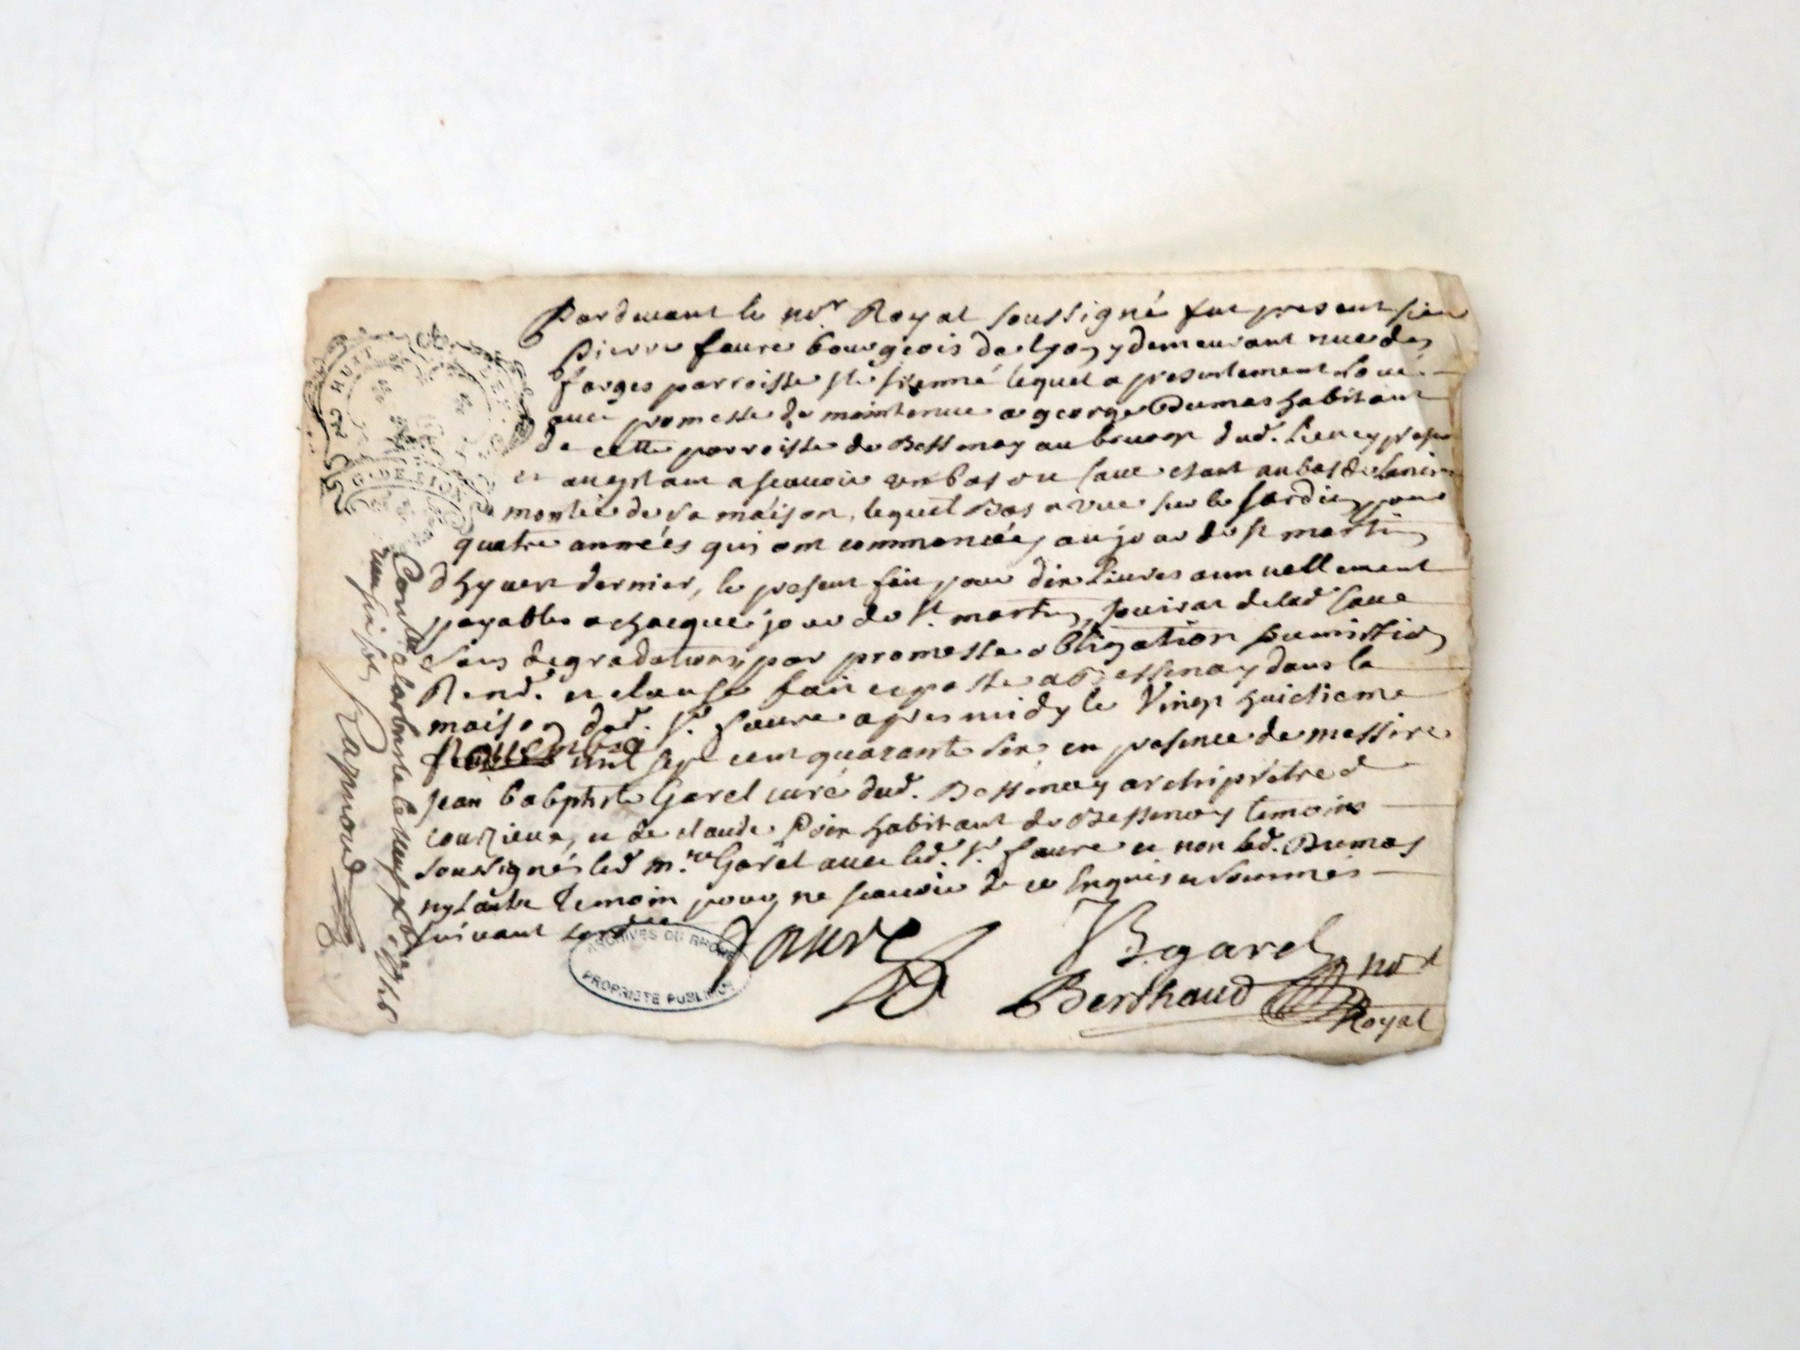 Pardevant le no.re Royal soussigné fut present sieur
Pierre faure bourgeois de lyon y demeurant rue des
forges parroisse st lequel a presentement loué
avec promesse de maintenue a george Dumas habitant
de cette parroisse de Bessenay au dud. lieu cy present
et a scavoir un bas ou cave etant au bas de
montée de sa maison, lequel Bas a vue sur le Jardin pour
quatre années qui ont commancées au jour de st martin
d'hyvert dernier, le present fait pour dix livres annuellement
payables a chacque jour de st. martin, jouirat de lad. cave
sans degradations par promesse obligation soumission
Rend. et clause fait et passé a Bessenay dans la
maison dud. sr. faure apres midy le vingt huictieme
Novembre mil sept cent quarante six en presence de messire
Jean baptiste Garel curé dud. Bessenay archiprêtre d
couzieux, et de claude habitant de Bessenay temoins
soussignés led. m.re Garel avec led. sr. faure et non led. Dumas
ny l'autre temoin pour ne scavoir de ce Enquis et sommés
suivant lord.ce
faure
B garel
Berthaud no.re
Royal
HUIT
G. DE LION
Con.lé a larbresle le neuf xbre 1746
Raymond
ARCHIVES DU RHÔNE
PROPRIÉTÉ PUBLIQUE